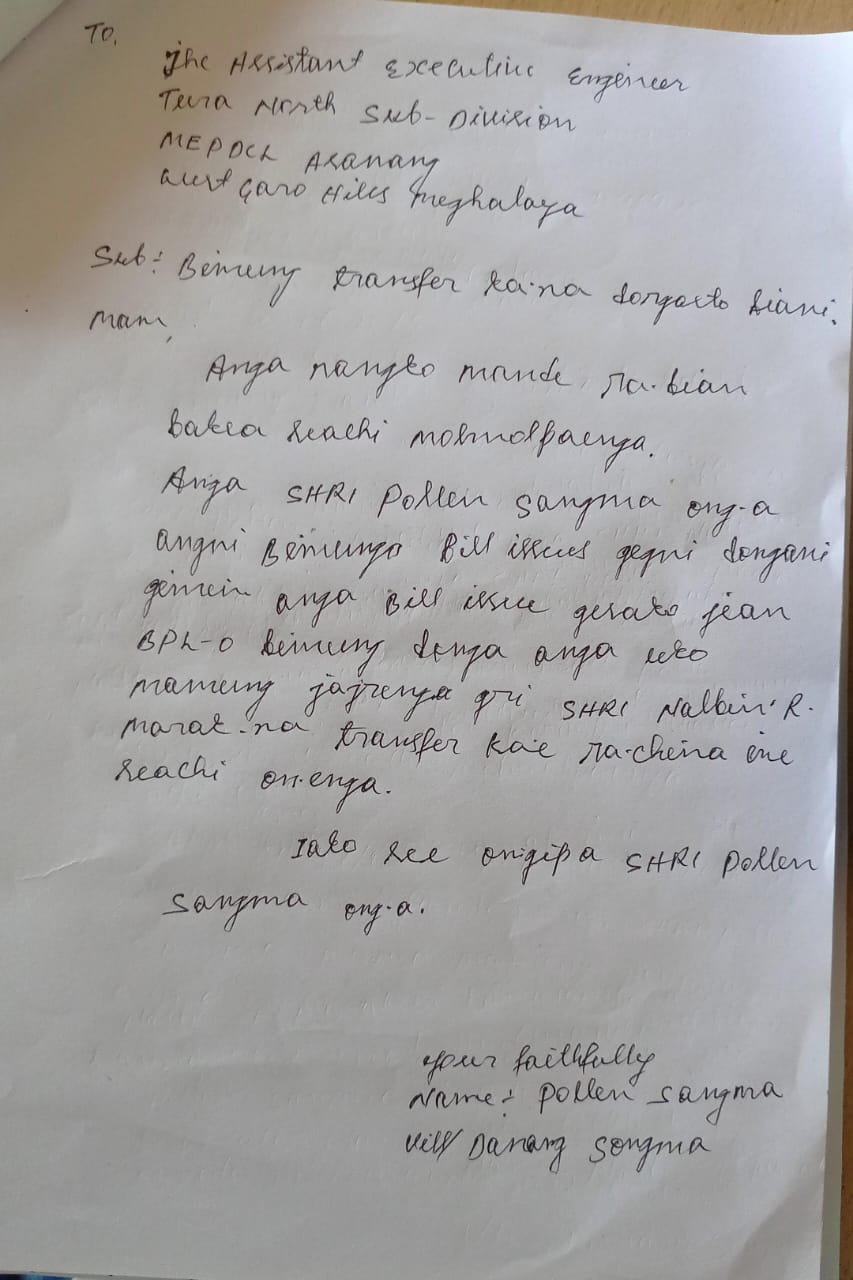 To,
The Assistant Executive Engineer
Tura North Sub-Division
MEPDCL Asanang
West Garo Hills Meghalaya
Sub: Bimung transfer ka·na dongato biani.
Mam,
Anga nangko mande ra·bian
baksa seachi molmolpaenga.
Anga SHRI Pollen Sangma ong·a
angni Bimungo Bill issues gegni dongani
gimin anga Bill issue gesako jean
BPL-o bimung donga anga uko
mamung jajrenga gri SHRI Nalbin R.
Marak-na transfer ka·e ra·china ine
seachi on·enga.
Iako see on·gipa SHRI Pollen
Sangma ong·a.
your faithfully
Name: Pollen Sangma
Vill Danang Songma